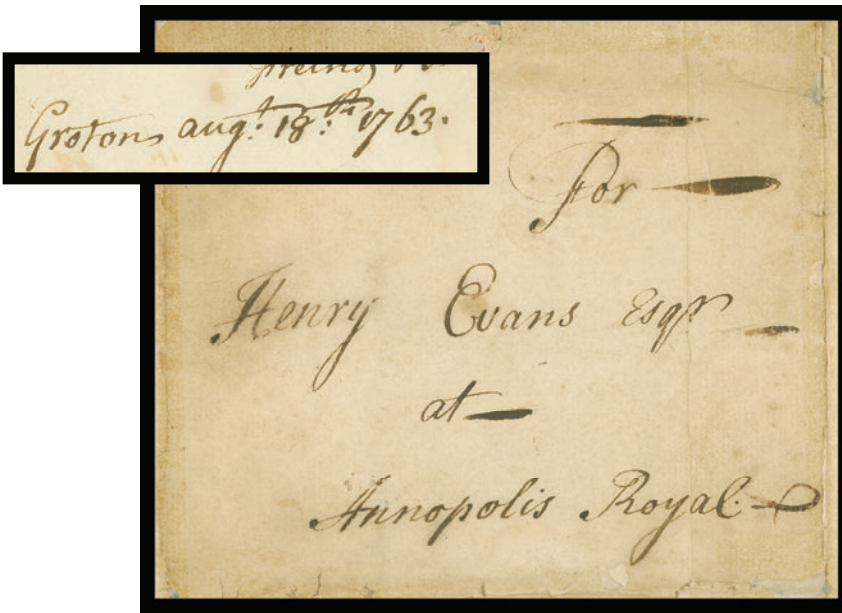 Groton augt. 18th. 1763.
For
Henry Evans Esqr
at
Annopolis Royal